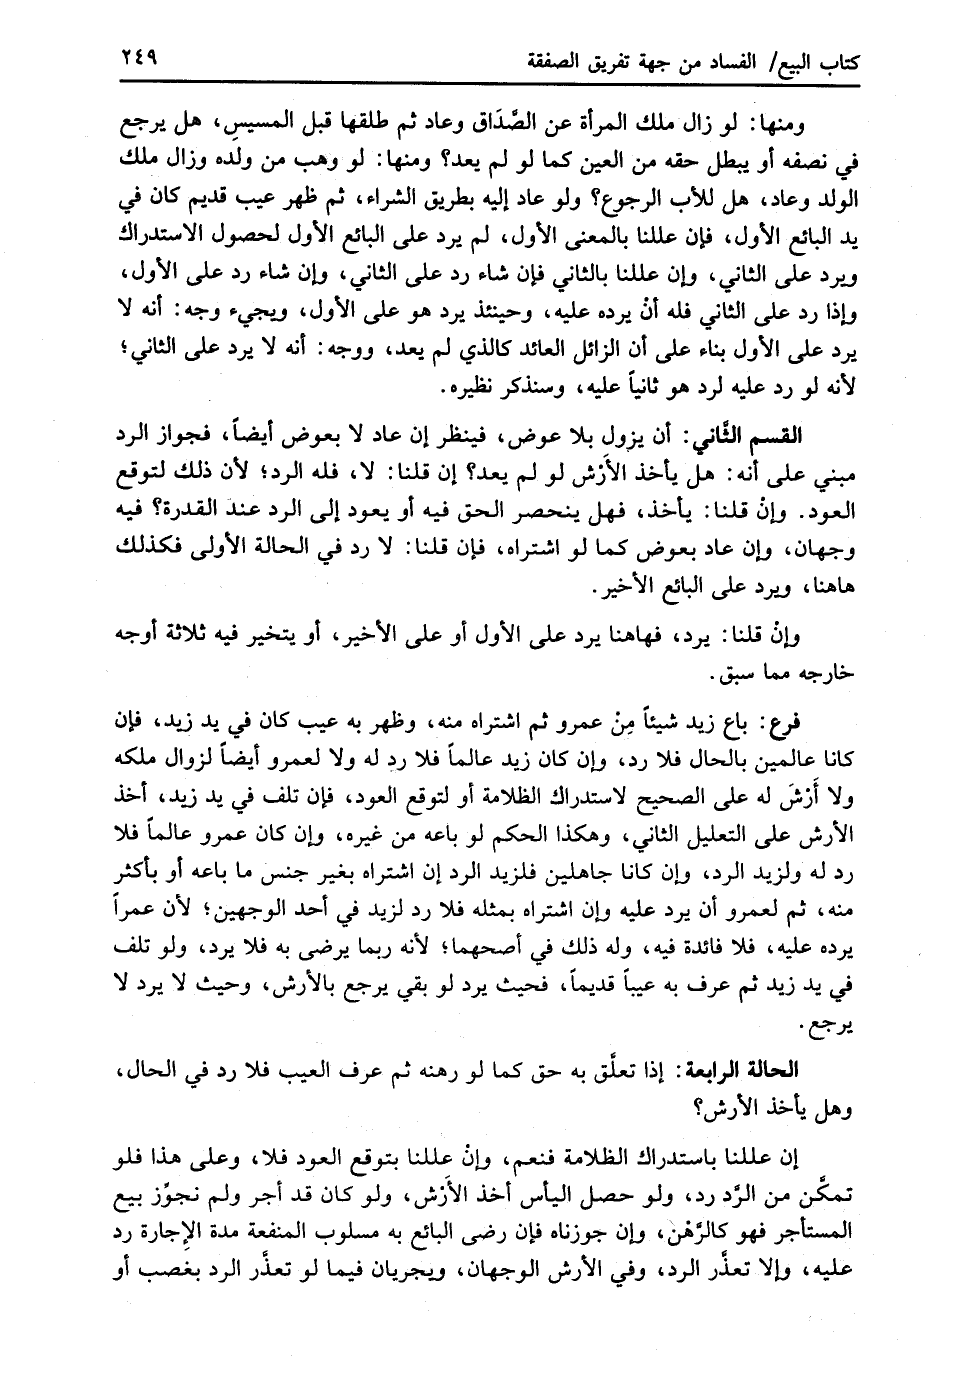 كتاب البيع/ الفساد من جهة تفريق الصفقة ٢٤٩
ومنها: لو زال ملك المرأة عن الصَّدَاق وعاد ثم طلقها قبل المسيسِ، هل يرجع
في نصفه أو يبطل حقه من العين كما لو لم يعد؟ ومنها: لو وهب من ولده وزال ملك
الولد وعاد، هل للأب الرجوع؟ ولو عاد إليه بطريق الشراء، ثم ظهر عيب قديم كان في
يد البائع الأول، فإن عللنا بالمعنى الأول، لم يرد على البائع الأول لحصول الاستدراك
ويرد على الثاني، وإن عللنا بالثاني فإن شاء رد على الثاني، وإن شاء رد على الأول،
وإذا رد على الثاني فله أنْ يرده عليه، وحينئذ يرد هو على الأول، ويجيء وجه: أنه لا
يرد على الأول بناء على أن الزائل العائد كالذي لم يعد، ووجه: أنه لا يرد على الثاني؛
لأنه لو رد عليه لرد هو ثانياً عليه، وسنذكر نظيره.
القسم الثَّاني: أن يزول بلا عوض، فينظر إن عاد لا بعوض أيضاً، فجواز الرد
مبني على أنه: هل يأخذ الأَرْش لو لم يعد؟ إن قلنا: لا، فله الرد؛ لأن ذلك لتوقع
العود. وإنْ قلنا: يأخذ، فهل ينحصر الحق فيه أو يعود إلى الرد عند القدرة؟ فيه
وجهان، وإن عاد بعوض كما لو اشتراه، فإن قلنا: لا رد في الحالة الأولى فكذلك
هاهنا، ويرد على البائع الأخير.
وإنْ قلنا: يرد، فهاهنا يرد على الأول أو على الأخير، أو يتخير فيه ثلاثة أوجه
خارجه مما سبق.
فرع: باع زيد شيئاً مِنْ عمرو ثم اشتراه منه، وظهر به عيب كان في يد زيد، فإن
كانا عالمين بالحال فلا رد، وإن كان زيد عالماً فلا رد له ولا لعمرو أيضاً لزوال ملكه
ولا أَرْشَ له على الصحيح لاستدراك الظلامة أو لتوقع العود، فإن تلف في يد زيد، أخذ
الأرش على التعليل الثاني، وهكذا الحكم لو باعه من غيره، وإن كان عمرو عالماً فلا
رد له ولزيد الرد، وإن كانا جاهلين فلزيد الرد إن اشتراه بغير جنس ما باعه أو بأكثر
منه، ثم لعمرو أن يرد عليه وإن اشتراه بمثله فلا رد لزيد في أحد الوجهين؛ لأن عمراً
يرده عليه، فلا فائدة فيه، وله ذلك في أصحهما؛ لأنه ربما يرضى به فلا يرد، ولو تلف
في يد زيد ثم عرف به عيباً قديماً، فحيث يرد لو بقي يرجع بالأرش، وحيث لا يرد لا
يرجع.
الحالة الرابعة: إذا تعلَّق به حق كما لو رهنه ثم عرف العيب فلا رد في الحال،
وهل يأخذ الأرش؟
إن عللنا باستدراك الظلامة فنعم، وإنْ عللنا بتوقع العود فلا، وعلى هذا فلو
تمكَّن من الرَّد رد، ولو حصل اليأس أخذ الأَرْش، ولو كان قد أجر ولم نجوِّز بيع
المستأجر فهو كالرَّهْن، وإن جوزناه فإن رضى البائع به مسلوب المنفعة مدة الإجارة رد
عليه، وإلا تعذَّر الرد، وفي الأرش الوجهان، ويجريان فيما لو تعذَّر الرد بغصب أو